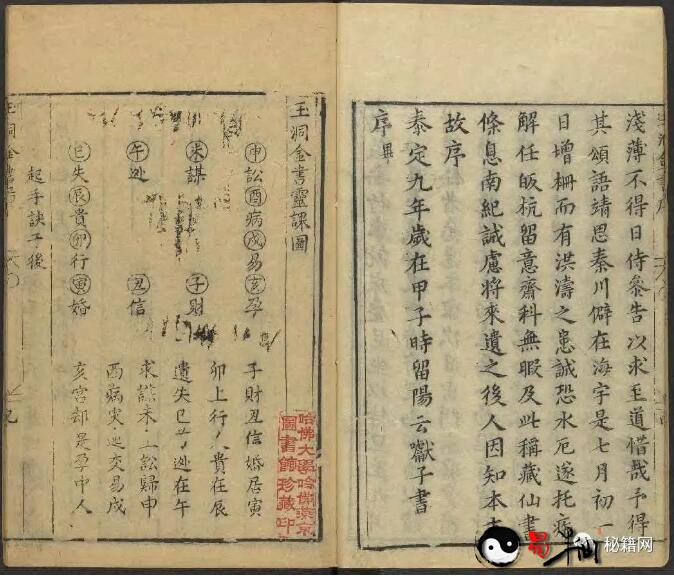 淺薄不得日侍叅告以求至道惜哉予得
其頌語靖思秦川僻在海宇是七月初一
日增柵而有洪濤之患誠恐水厄遂托病
解任皈杭留意齋科無暇及此稱藏仙書
條息南紀誠慮將來遺之後人因知本末
故序
泰定九年歲在甲子時留陽云獻子書
序畢
玉洞金書靈課圖
申訟酉病戌易亥孕
未謀 子財
午逃 丑信
巳失辰貴卯行寅婚
起手訣于後
子財丑信婚居寅
卯上行人貴在辰
遺失巳 逃在午
求謀未上訟歸申
酉病 交易戌
亥宮却是孕中人
哈佛大學哈佛燕京
圖書館珍藏印
秘籍网